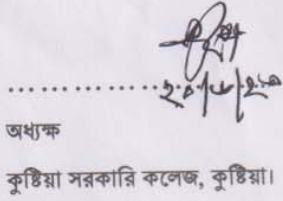 অধ্যক্ষ
কুষ্টিয়া সরকারি কলেজ, কুষ্টিয়া।